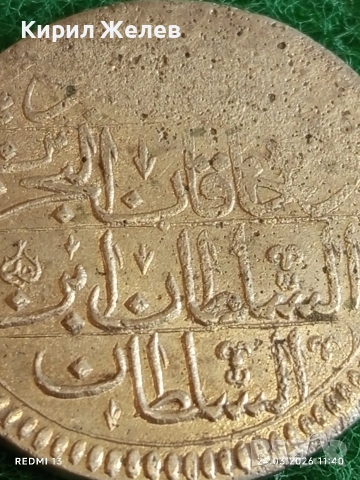 Кирил Желев
خاقان البحر
السلطان ابن
السلطان
REDMI 13
03/2026 11:40